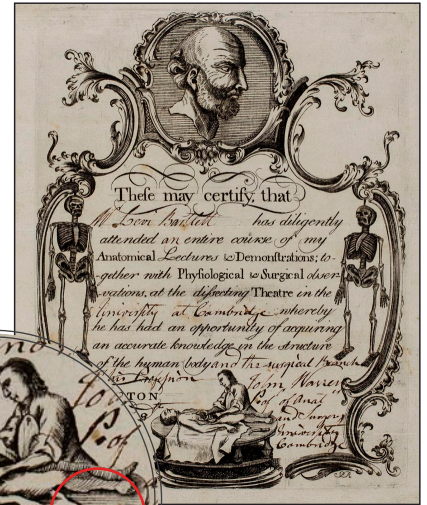 These may certify, that
Mr Levi Bartlett has diligently
attended an entire course of my
Anatomical Lectures & Demonstrations; to-
gether with Physiological & Surgical obser-
vations, at the dissecting Theatre in the
University at Cambridge whereby
he has had an opportunity of acquiring
an accurate knowledge in the structure
of the human body and the surgical Branch
John Warren
TON
Prof of Anat
and Surgery
University
Cambridge